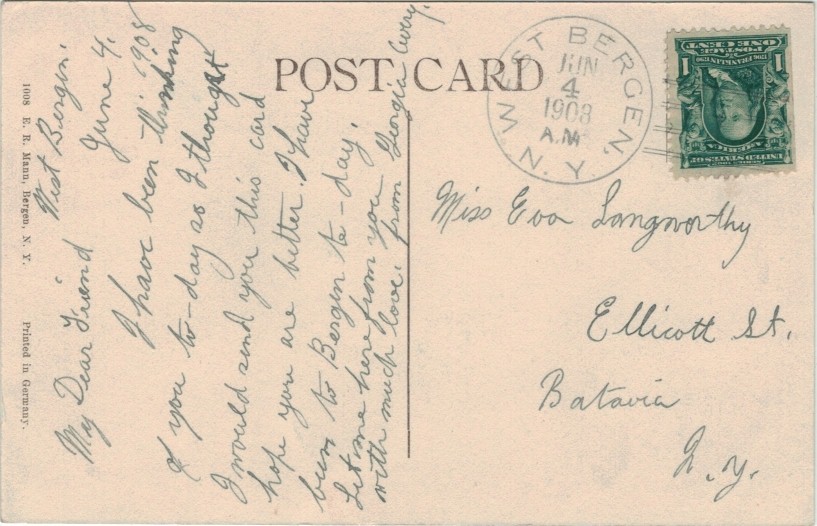 POST CARD
WEST BERGEN, N.Y.
JUN
4
1908
A.M.
ONE CENT
POSTAGE
FRANKLIN
1 1
SERIES 1902
UNITED STATES OF
AMERICA
West Bergen.
June 4, 1908
My Dear Friend
I have been thinking
of you to-day so I thought
I would send you this card
hope you are better. I have
been to Bergen to-day.
Let me here from you
with much love. from Georgia Avery.
Miss Eva Langworthy
Ellicott St.
Batavia
N.Y.
1008 E. R. Mann, Bergen, N. Y. Printed in Germany.